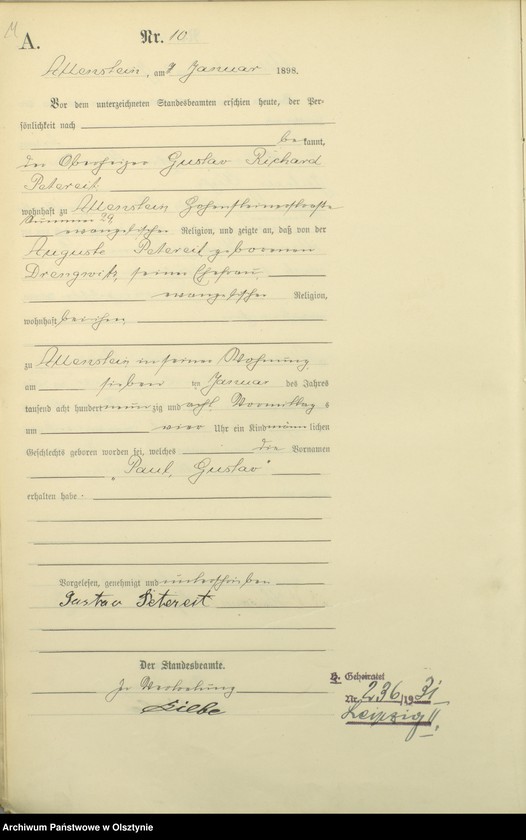 A.
Nr. 10
Allenstein, am 8 Januar 1898.
Vor dem unterzeichneten Standesbeamten erschien heute, der Per-
sönlichkeit nach
bekannt,
der Oberheizer Gustav Richard
Petereit
wohnhaft zu Allenstein Hohensteinerstraße
Nummer 29
evangelischer Religion, und zeigte an, daß von der
Auguste Petereit geborenen
Drengwitz, seiner Ehefrau,
evangelischer Religion,
wohnhaft bei ihm,
zu Allenstein in seiner Wohnung,
am sieben ten Januar des Jahres
tausend acht hundert neunzig und acht Vormittags
um vier Uhr ein Kind männlichen
Geschlechts geboren worden sei, welches die Vornamen
"Paul, Gustav"
erhalten habe.
Vorgelesen, genehmigt und unterschrieben
Gustav Petereit
Der Standesbeamte.
In Vertretung
B. Geheiratet
Nr. 236/1931
Leipzig II.
Archiwum Państwowe w Olsztynie